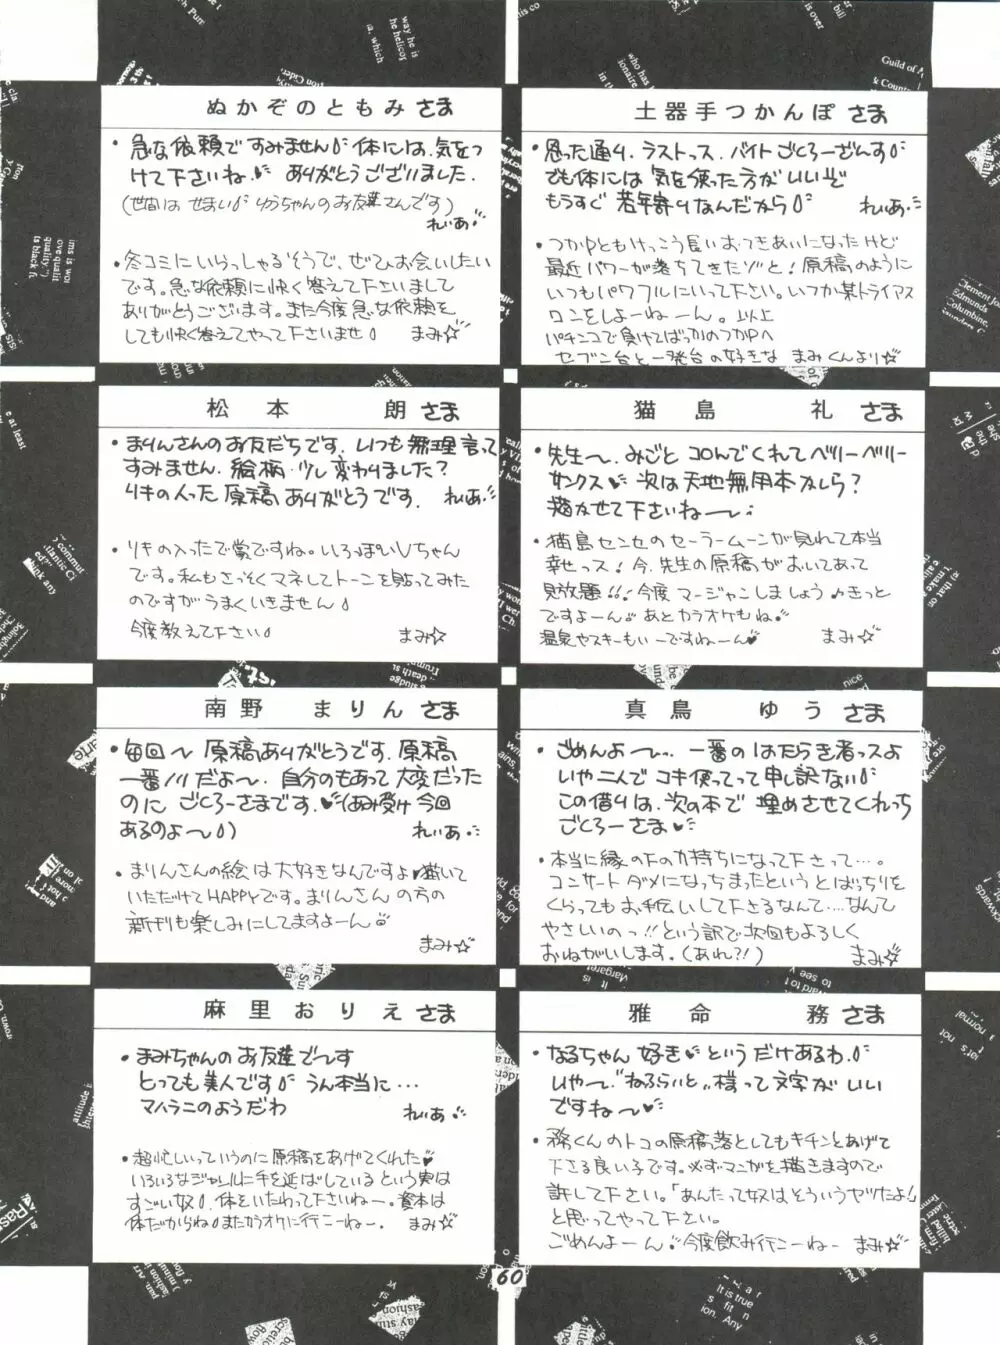 ぬかぞのともみさま
・急な依頼ですみません 体には、気をつ
けて下さいね♥ ありがとうございました。
(世間は せまい ゆうちゃんのお友達さんです)
れいあ
・冬コミにいらっしゃるそうで、ぜひお会いしたい
です。急な依頼に快く答えて下さいまして
ありがとうございます。また今度急な依頼を
しても快く答えてやって下さいませ まみ☆
土器手つかんぽさま
・思った通り、ラストっス、バイトごくろーざんす
でも体には 気を使った方がいいぞ
もうすぐ 若年寄りなんだから
れいあ
・つかPともけっこう長いおつきあいになったけど
最近パワーが落ちてきたゾと！原稿のように
いつもパワフルにいって下さい。いつか某トライアス
ロンをしよーねーん。以上
パチンコで負けてばっかのつかPへ
セブン台と一発台の好きな まみくんより☆
松本 朗さま
・まりんさんのお友だちです。いつも無理言って
すみません。絵柄、少し変わりました？
リキの入った原稿ありがとうです。 れいあ
・リキの入ったで賞ですね。いろっぽいVちゃん
です。私もさっそくマネしてトーンを貼ってみた
のですがうまくいきません
今度教えて下さい まみ☆
猫島 礼さま
・先生〜、みごと コロんでくれてベリーベリー
サンクス♥ 次は天地無用本かしら？
描かせて下さいね〜
・猫島センセのセーラームーンが見れて本当
幸せっス！今、先生の原稿がおいてあって
見放題!!!今度 マージャンしましょう♪きっと
ですよーん あとカラオケもね
温泉やスキーもいーですねーん♥ まみ☆
南野 まりんさま
・毎回〜 原稿ありがとうです。原稿
一番ノリだよ〜、自分のもあって大変だった
のに ごくろーさまです、♥(あみ受け 今回
あるのよ〜)
れいあ
・まりんさんの絵は大好きなんですよ♥描いて
いただけてHAPPYです。まりんさん の方の
新刊も楽しみにしてますよーん
まみ☆
真鳥 ゆうさま
・ごめんよ〜、一番のはたらき者っスよ
いや二人で コキ使ってって申し訳ない
この借りは、次の本で 埋めさせてくれっち
ごくろーさま♥
・本当に縁の下の力持ちになって下さって…。
コンサートダメになっちまったというとばっちりを
くらってもお手伝いして下さるなんて…なんて
やさしいのっ!!という訳で次回もよろしく
おねがいします。(あれ?!) まみ☆
麻里おりえさま
・まみちゃんのお友達で〜す
とっても美人です うん本当に…
マハラニのようだわ
れいあ
・超忙しいっていうのに原稿をあげてくれた♥
いろいろなジャンルに手を延ばしているという実は
すごい奴。体をいたわって下さいねー。資本は
体だからね またカラオケに行こーねー。 まみ☆
雅命 務さま
・なるちゃん 好き♥というだけあるわ、
いや〜、"ねるらいと"様って文字がいい
ですね〜♥
・務くんのトコの原稿落としてもキチンとあげて
下さる良い子です。必ずマンガを描きますので
許して下さい。「あんたって奴はそういうヤツだよ」
と思ってやって下さい。
ごめんよーん 今度飲み行こーねー まみ☆
60